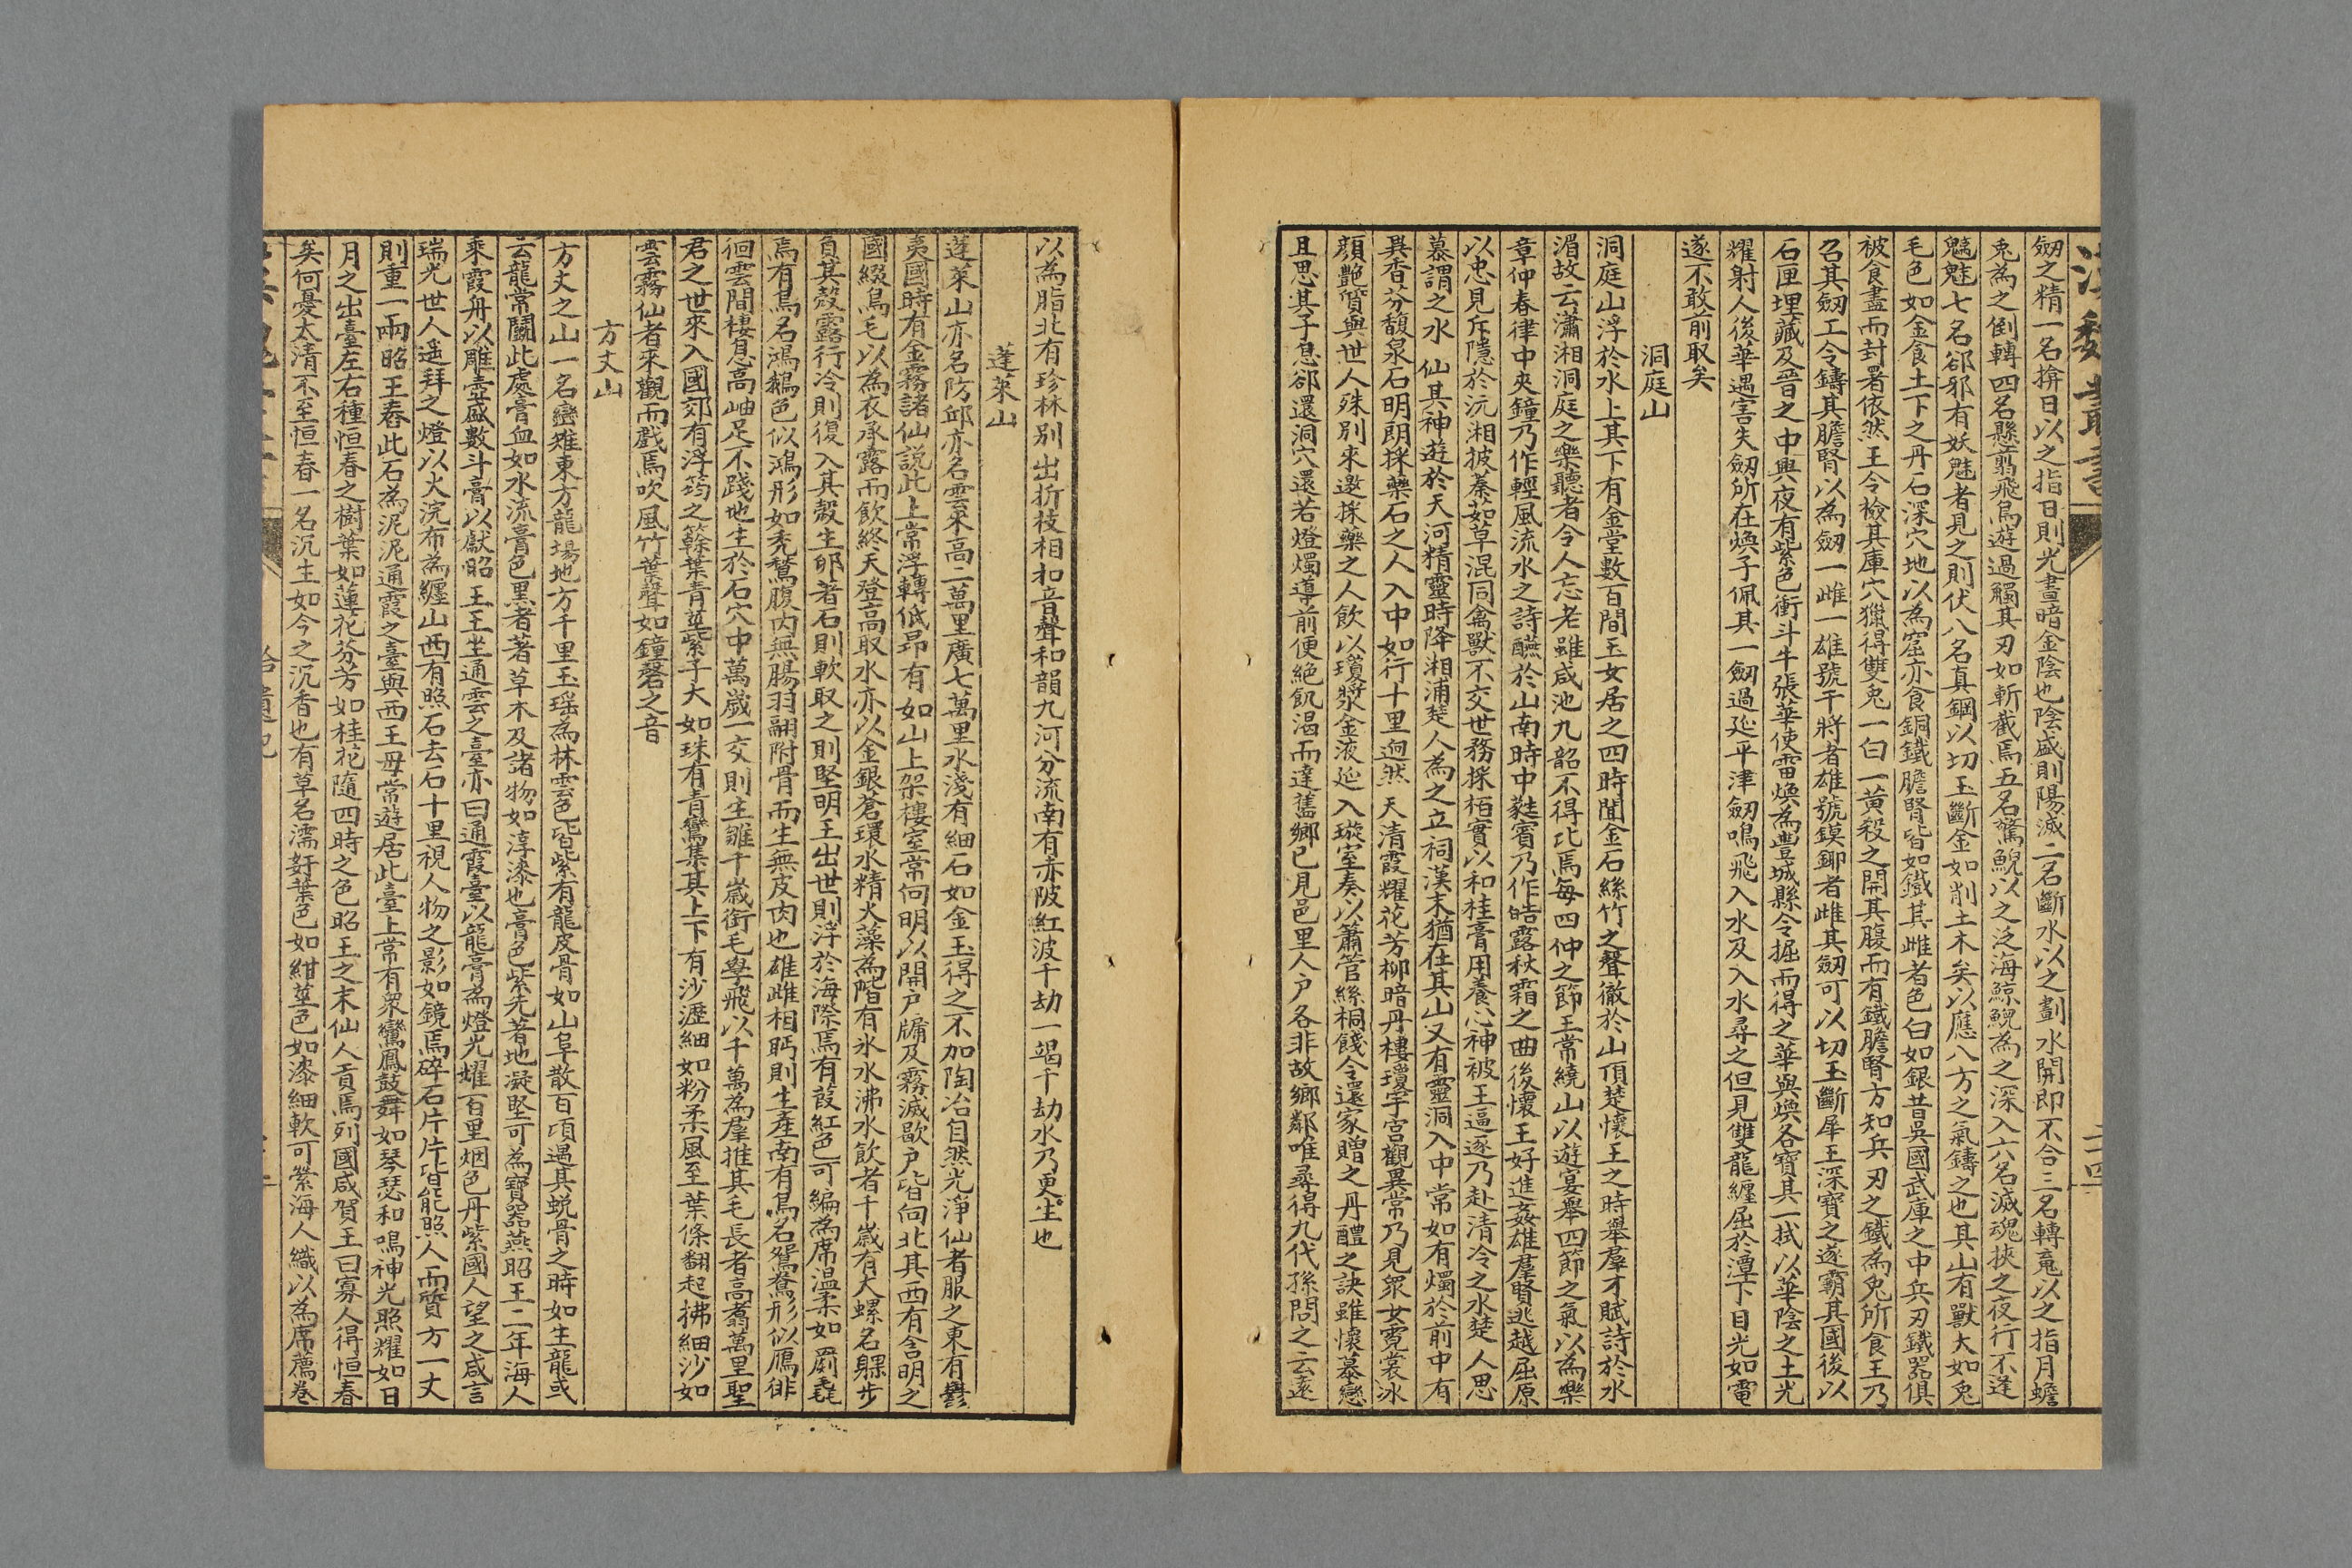 漢魏叢書
二十四
劒之精一名揜日以之指日則光晝暗金陰也陰盛則陽滅二名斷水以之劃水開即不合三名轉㲋以之指月蟾
兎為之倒轉四名懸翦飛鳥遊過觸其刃如斬截焉五名驚鯢以之泛海鯨鯢為之深入六名滅魂挾之夜行不逢
魑魅七名郤邪有妖魅者見之則伏八名真鋼以切玉斷金如削土木矣以應八方之氣鑄之也其山有獸大如兔
毛色如金食土下之丹石深穴地以為窟亦食銅鐵膽腎皆如鐵其雌者色白如銀昔吳國武庫之中兵刃鐵器俱
被食盡而封署依然王令檢其庫穴獵得雙兎一白一黃殺之開其腹而有鐵膽腎方知兵刃之鐵為兎所食王乃
召其劒工令鑄其膽腎以為劒一雌一雄號干將者雄號鏌鋣者雌其劒可以切玉斷犀王深寶之遂霸其國後以
石匣埋藏及晉之中興夜有紫色衝斗牛張華使雷煥為豐城縣令掘而得之華與煥各寶其一拭以華陰之土光
耀射人後華遇害失劒所在煥子佩其一劒過延平津劒鳴飛入水及入水尋之但見雙龍纏屈於潭下目光如電
遂不敢前取矣
洞庭山
洞庭山浮於水上其下有金堂數百間玉女居之四時聞金石絲竹之聲徹於山頂楚懷王之時舉羣才賦詩於水
湄故云瀟湘洞庭之樂聽者令人忘老雖咸池九韶不得比焉每四仲之節王常繞山以遊宴舉四節之氣以為樂
章仲春律中夾鐘乃作輕風流水之詩醼於山南時中蕤賓乃作皓露秋霜之曲後懷王好進姦雄羣賢逃越屈原
以忠見斥隱於沅湘披蓁茹草混同禽獸不交世務採栢實以和桂膏用養心神被王逼逐乃赴清冷之水楚人思
慕謂之水仙其神遊於天河精靈時降湘浦楚人為之立祠漢末猶在其山又有靈洞入中常如有燭於前中有
異香芬馥泉石明朗採藥石之人入中如行十里迥然天清霞耀花芳柳暗丹樓瓊宇宮觀異常乃見衆女霓裳冰
顔艷質與世人殊別來邀採藥之人飲以瓊漿金液延入璇室奏以簫管絲桐餞令還家贈之丹醴之訣雖懷慕戀
且思其子息郤還洞穴還若燈燭導前便絕飢渴而達舊鄉已見邑里人戶各非故鄉鄰唯尋得九代孫問之云遠
以為脂北有珍林别出折枝相扣音聲和韻九河分流南有赤陂紅波千劫一竭千劫水乃更生也
蓬萊山
蓬萊山亦名防邱亦名雲來高二萬里廣七萬里水淺有細石如金玉得之不加陶冶自然光淨仙者服之東有鬱
夷國時有金霧諸仙說此上常浮轉低昂有如山上架樓室常向明以開戶牖及霧滅歇戶皆向北其西有含明之
國綴鳥毛以為衣承露而飲終天登高取水亦以金銀蒼環水精火藻為階有氷水沸水飲者千歲有大螺名躶步
負其殼露行冷則復入其殼生卵著石則軟取之則堅明王出世則浮於海際焉有葭紅色可編為席温柔如罽毳
焉有鳥名鴻鵝色似鴻形如秃鶖腹內無腸羽翮附骨而生無皮肉也雄雌相眄則生產南有鳥名鴛鴦形似鴈徘
徊雲間棲息高岫足不踐地生於石穴中萬歲一交則生雛千歲銜毛學飛以千萬為羣推其毛長者高翥萬里聖
君之世來入國郊有浮筠之簳葉青莖紫子大如珠有青鸞集其上下有沙瀝細如粉柔風至葉條翻起拂細沙如
雲霧仙者來觀而戲焉吹風竹葉聲如鐘磬之音
方丈山
方丈之山一名巒雉東方龍場地方千里玉瑶為林雲色皆紫有龍皮骨如山阜散百頃遇其蛻骨之時如生龍或
云龍常鬭此處膏血如水流膏色黑者著草木及諸物如淳漆也膏色紫光著地凝堅可為寶器燕昭王二年海人
乘霞舟以雕壺盛數斗膏以獻昭王王坐通雲之臺亦曰通霞臺以龍膏為燈光耀百里烟色丹紫國人望之咸言
瑞光世人遥拜之燈以火浣布為纏山西有照石去石十里視人物之影如鏡焉碎石片片皆能照人而質方一丈
則重一兩昭王舂此石為泥泥通霞之臺與西王母常遊居此臺上常有衆鸞鳳鼓舞如琴瑟和鳴神光照耀如日
月之出臺左右種恒春之樹葉如蓮花芬芳如桂花隨四時之色昭王之末仙人貢焉列國咸賀王曰寡人得恒春
矣何憂太清不至恒春一名沉生如今之沉香也有草名濡姧葉色如紺莖色如漆細軟可縈海人織以為席薦卷
拾遺記